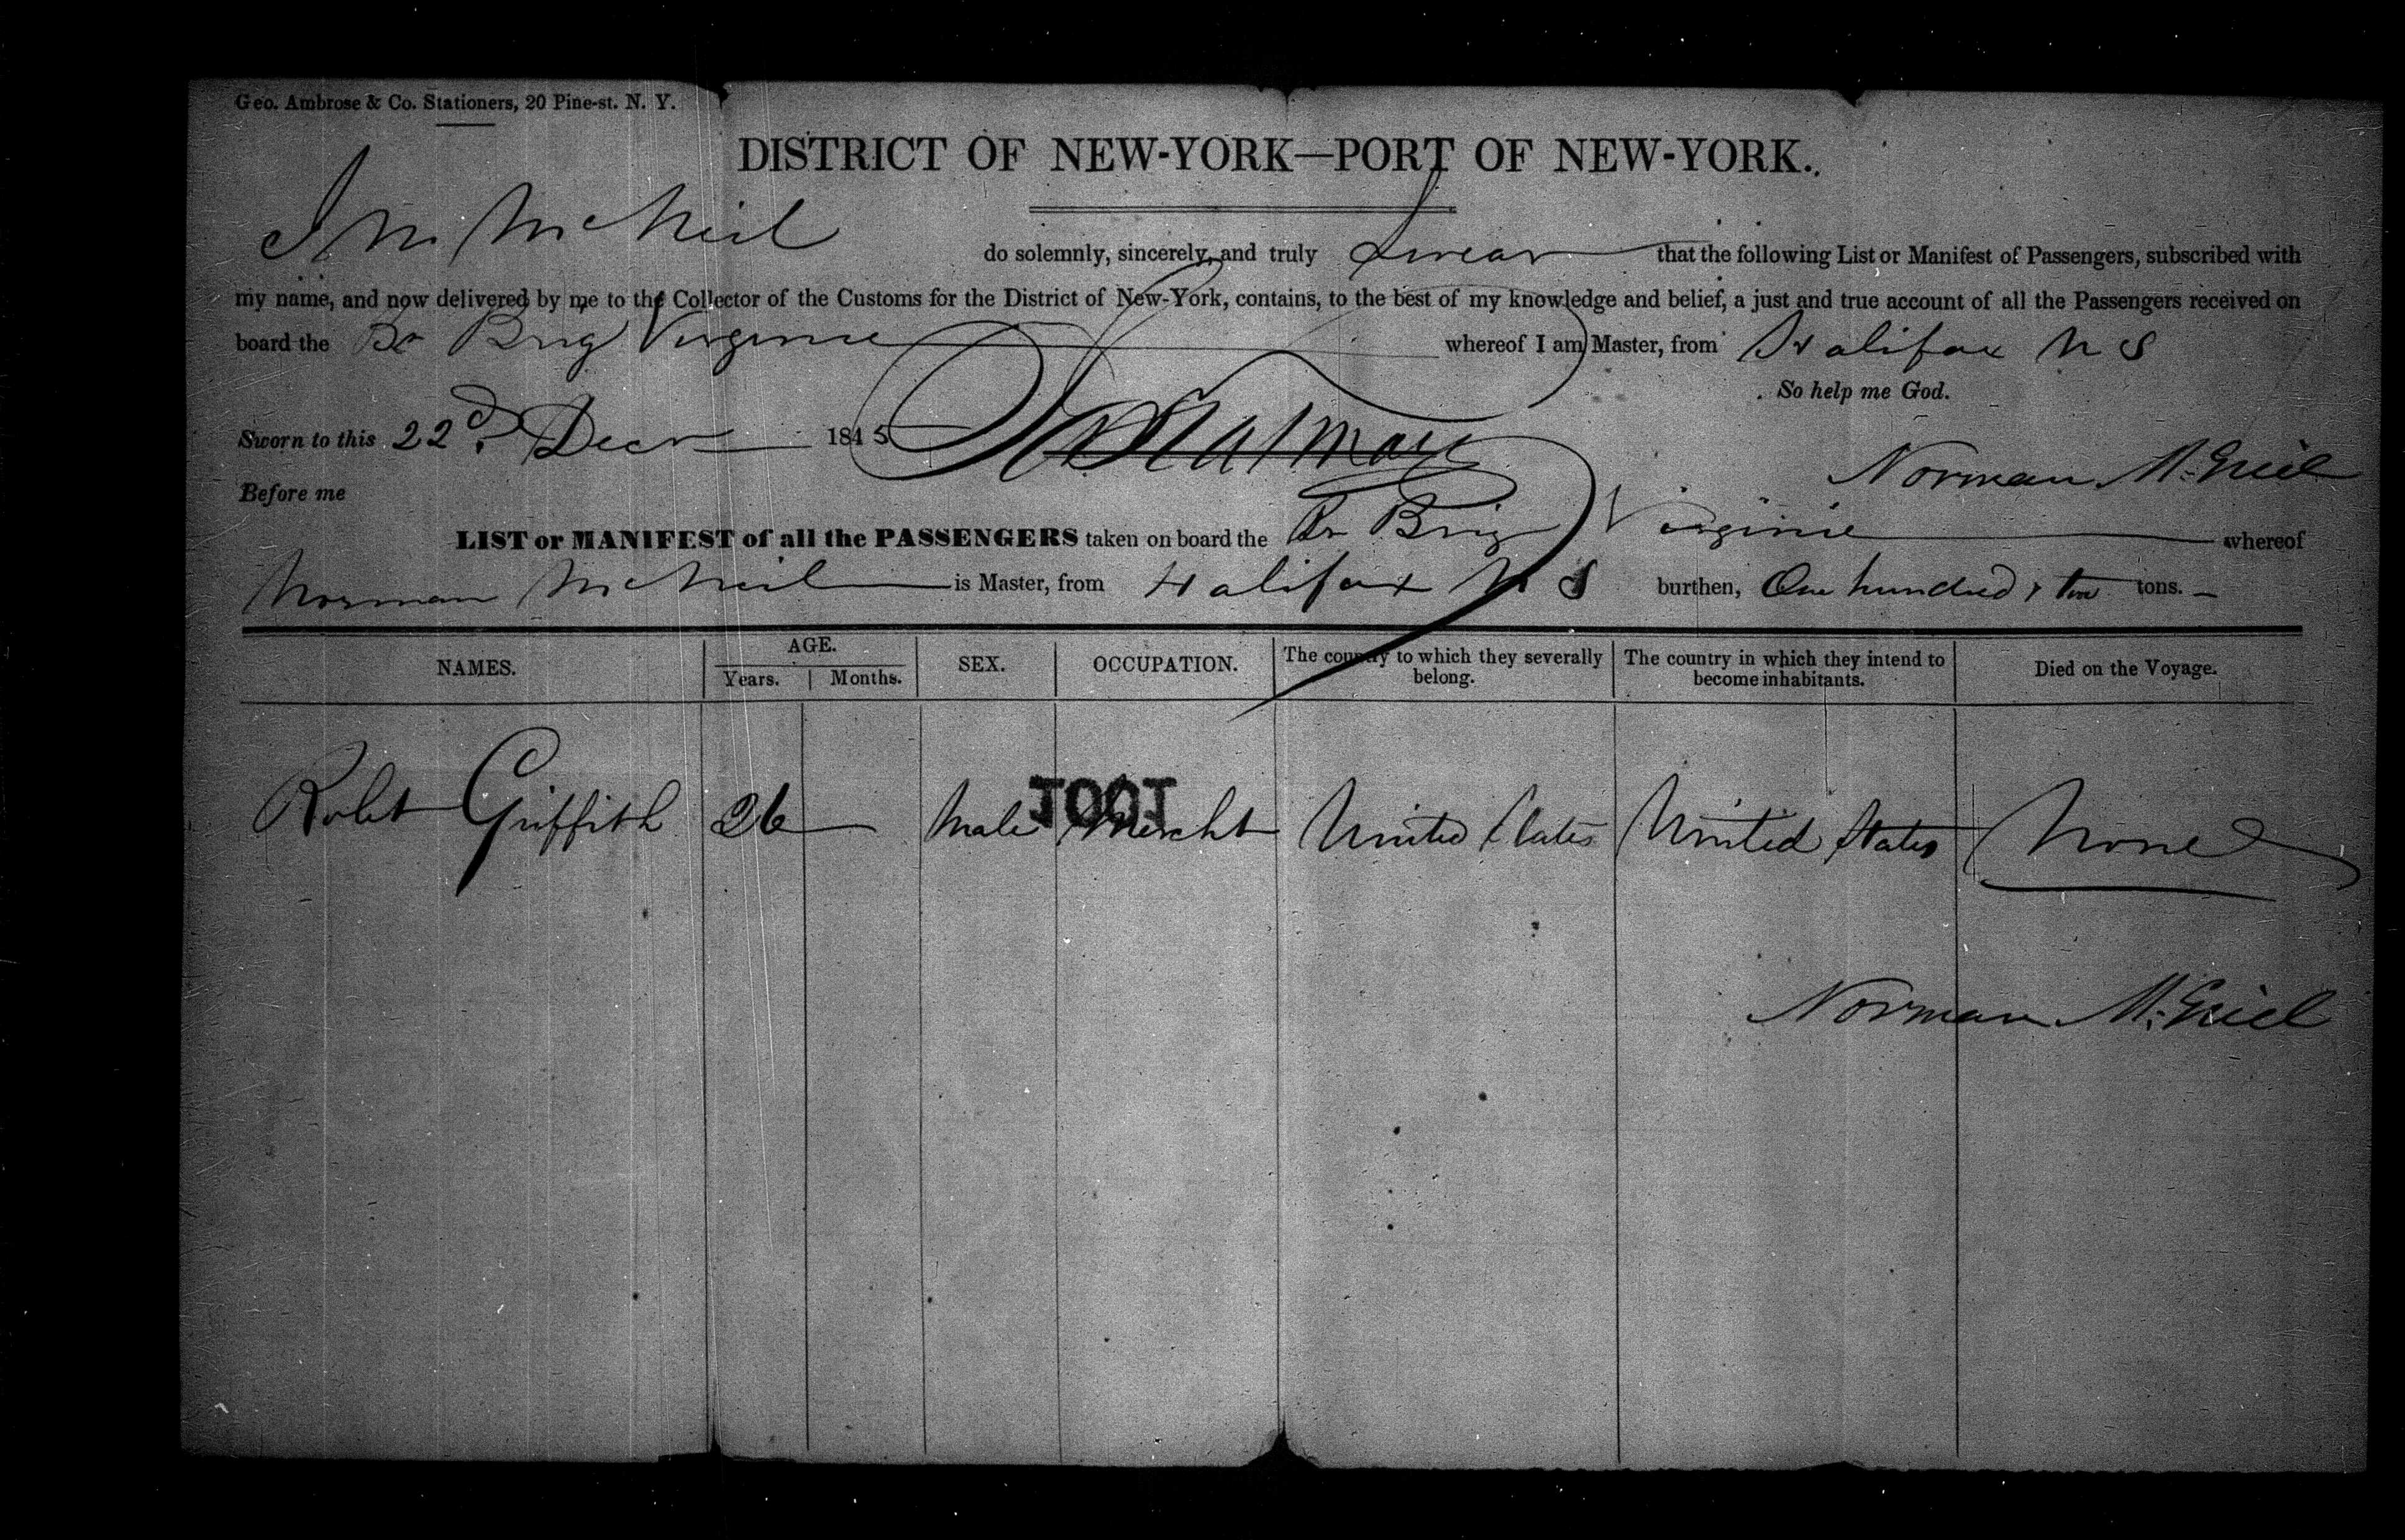 Geo. Ambrose & Co. Stationers, 20 Pine-st. N. Y.
DISTRICT OF NEW-YORK—PORT OF NEW-YORK.
I N. McNeil do solemnly, sincerely, and truly Swear that the following List or Manifest of Passengers, subscribed with
my name, and now delivered by me to the Collector of the Customs for the District of New-York, contains, to the best of my knowledge and belief, a just and true account of all the Passengers received on
board the Br Brig Virginie whereof I am Master, from Halifax N S
So help me God.
Sworn to this 22d. Decr 1845
Norman McNeil
Before me
LIST or MANIFEST of all the PASSENGERS taken on board the Br Brig Virginie whereof
Norman McNeil is Master, from Halifax N S burthen, One hundred & tons.
NAMES. AGE. SEX. OCCUPATION. The country to which they severally belong. The country in which they intend to become inhabitants. Died on the Voyage.
Years. Months.
Robt Griffith 26 Male Mercht United States United States None
1001
Norman McNeil